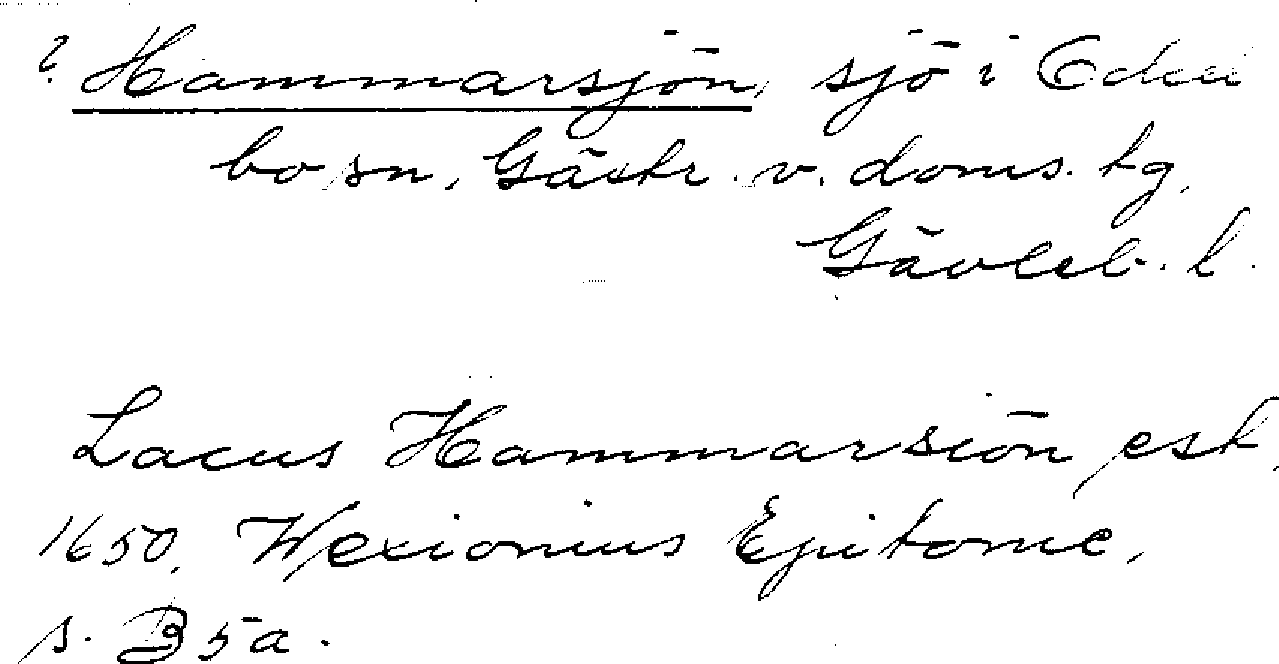 ? Hammarsjön, sjö i Edsle
bo sn, Gästr. v. doms. tg,
Gävleb. l.
Lacus Hammarsiön est,
1650, Wexionius Epitome,
s. B5a.